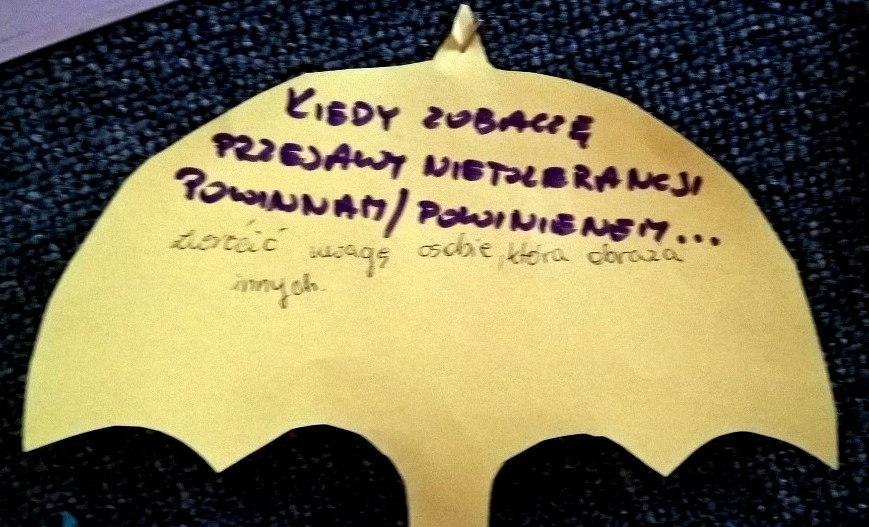 KIEDY ZOBACZĘ
PRZEJAWY NIETOLERANCJI
POWINNAM/POWINIENEM...
zwrócić uwagę osobie, która obraża
innych.